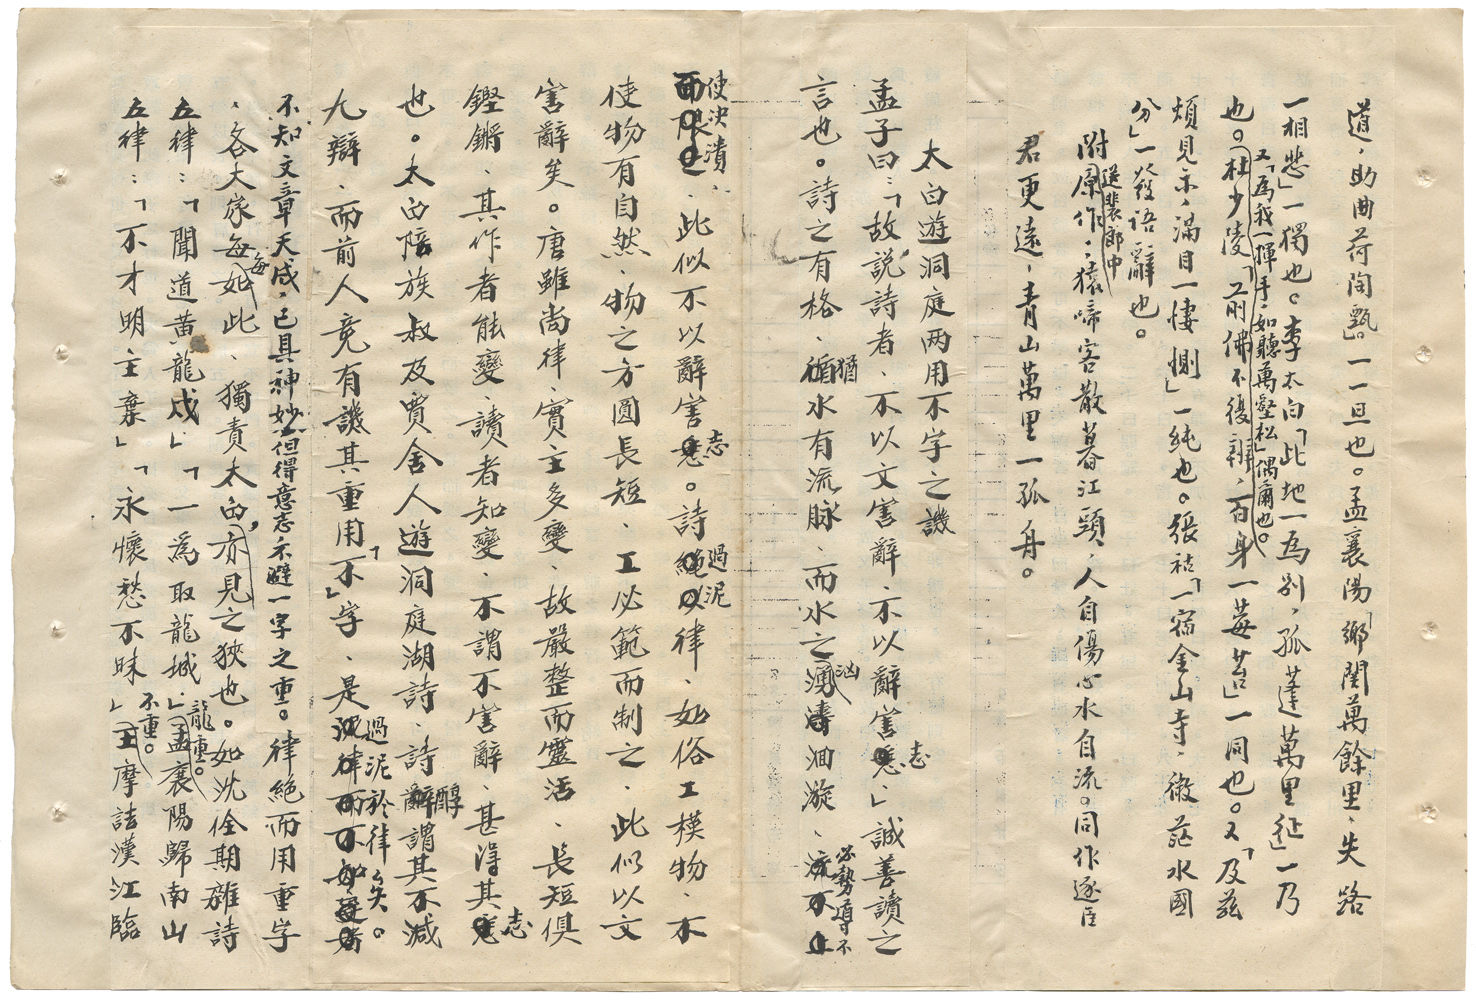 道、助曲荷陶甄。一一旦也。孟襄陽「鄉關萬餘里、失路
一相悲」一獨也。李太白「此地一為別，孤蓬萬里征」一乃
又「為我一揮手、如聽萬壑松」偶爾也。
也。杜少陵「前佛不復辨、百身一莓苔」一同也。又「及茲
煩見示、滿目一悽惻」一純也。張祜「一宿金山寺、微茫水國
分」一發語辭也。
附原作：猿啼客散暮江頭、人自傷心水自流。同作逐臣
送裴郎中
君更遠、青山萬里一孤舟。
太白遊洞庭两用不字之譏
孟子曰：「故說詩者、不以文害辭、不以辭害志、」誠善讀之
言也。詩之有格、猶水有流脉、而水之汹濤洄漩、必勢導不
使決潰、此似不以辭害志。詩過泥律、如俗工模物、不
使物有自然、物之方圓長短、工必範而制之、此似以文
害辭矣。唐雖尚律、實主多變、故嚴整而靈活、長短俱
鏗鏘、其作者能變、讀者知變、不謂不害辭、甚得其志
也。太白陪族叔及賈舍人遊洞庭湖詩、詩醇謂其不減
九辯、而前人竟有譏其重用「不」字、是過泥於律矣。
不知文章天成，已具神妙，但得意志不避一字之重。律絕而用重字
、各大家每每如此、獨責太白，亦見之狹也。如沈佺期雜詩
五律：「聞道黃龍戍」「一為取龍城」龍重。孟襄陽歸南山
五律：「不才明主棄」「永懷愁不昧」不重。王摩詰漢江臨